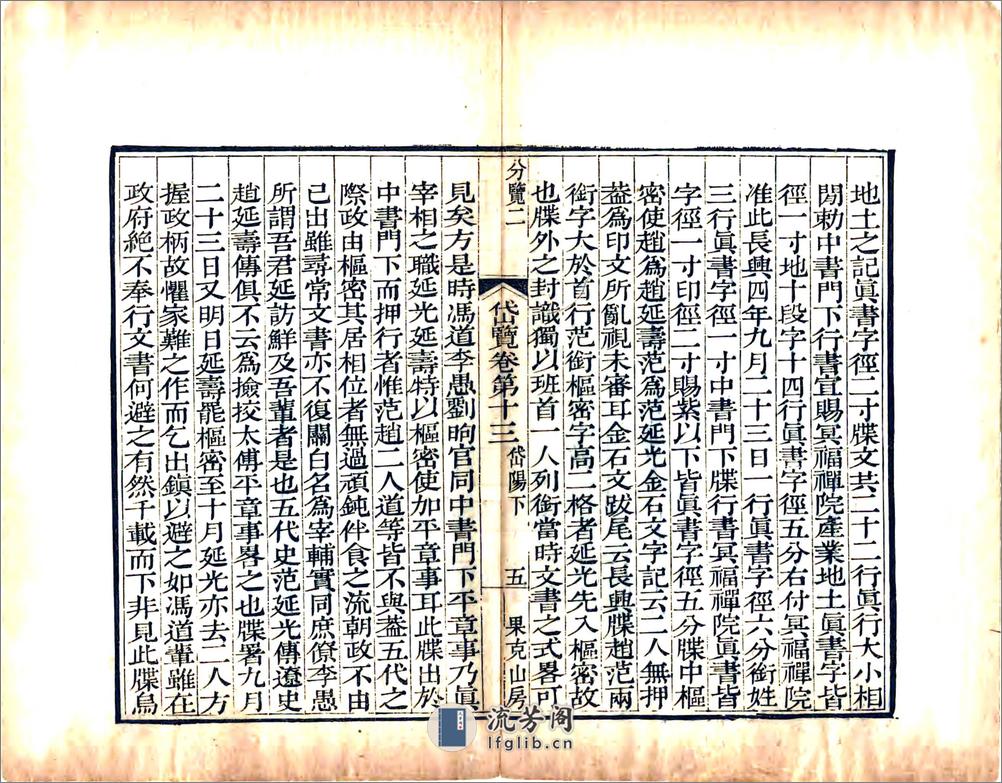 地土之記眞書字徑二寸牒文共二十二行眞行大小相
閒勅中書門下行書宣賜冥福禪院產業地土眞書字皆
徑一寸地十段字十四行眞書字徑五分右付冥福禪院
准此長興四年九月二十三日一行眞書字徑六分銜姓
三行眞書字徑一寸中書門下牒行書冥福禪院眞書皆
字徑一寸印徑二寸賜紫以下皆眞書字徑五分牒中樞
密使趙爲趙延壽范爲范延光金石文字記云二人無押
葢爲印文所亂視未審耳金石文跋尾云長興牒趙范兩
銜字大於首行范銜樞密字高二格者延光先入樞密故
也牒外之封識獨以班首一人列銜當時文書之式畧可
分覽二
岱覽卷第十三 岱陽下 五 果克山房
見矣方是時馮道李愚劉昫官同中書門下平章事乃眞
宰相之職延光延壽特以樞密使加平章事耳此牒出於
中書門下而押行者惟范趙二人道等皆不與葢五代之
際政由樞密其居相位者無過頑鈍伴食之流朝政不由
己出雖尋常文書亦不復關白名爲宰輔實同庶僚李愚
所謂吾君延訪鮮及吾輩者是也五代史范延光傳遼史
趙延壽傳俱不云爲撿挍太傅平章事畧之也牒署九月
二十三日又明日延壽罷樞密至十月延光亦去二人方
握政柄故懼家難之作而乞出鎭以避之如馮道輩雖在
政府絕不奉行文書何避之有然千載而下非見此牒烏
流芳阁
lfglib.cn